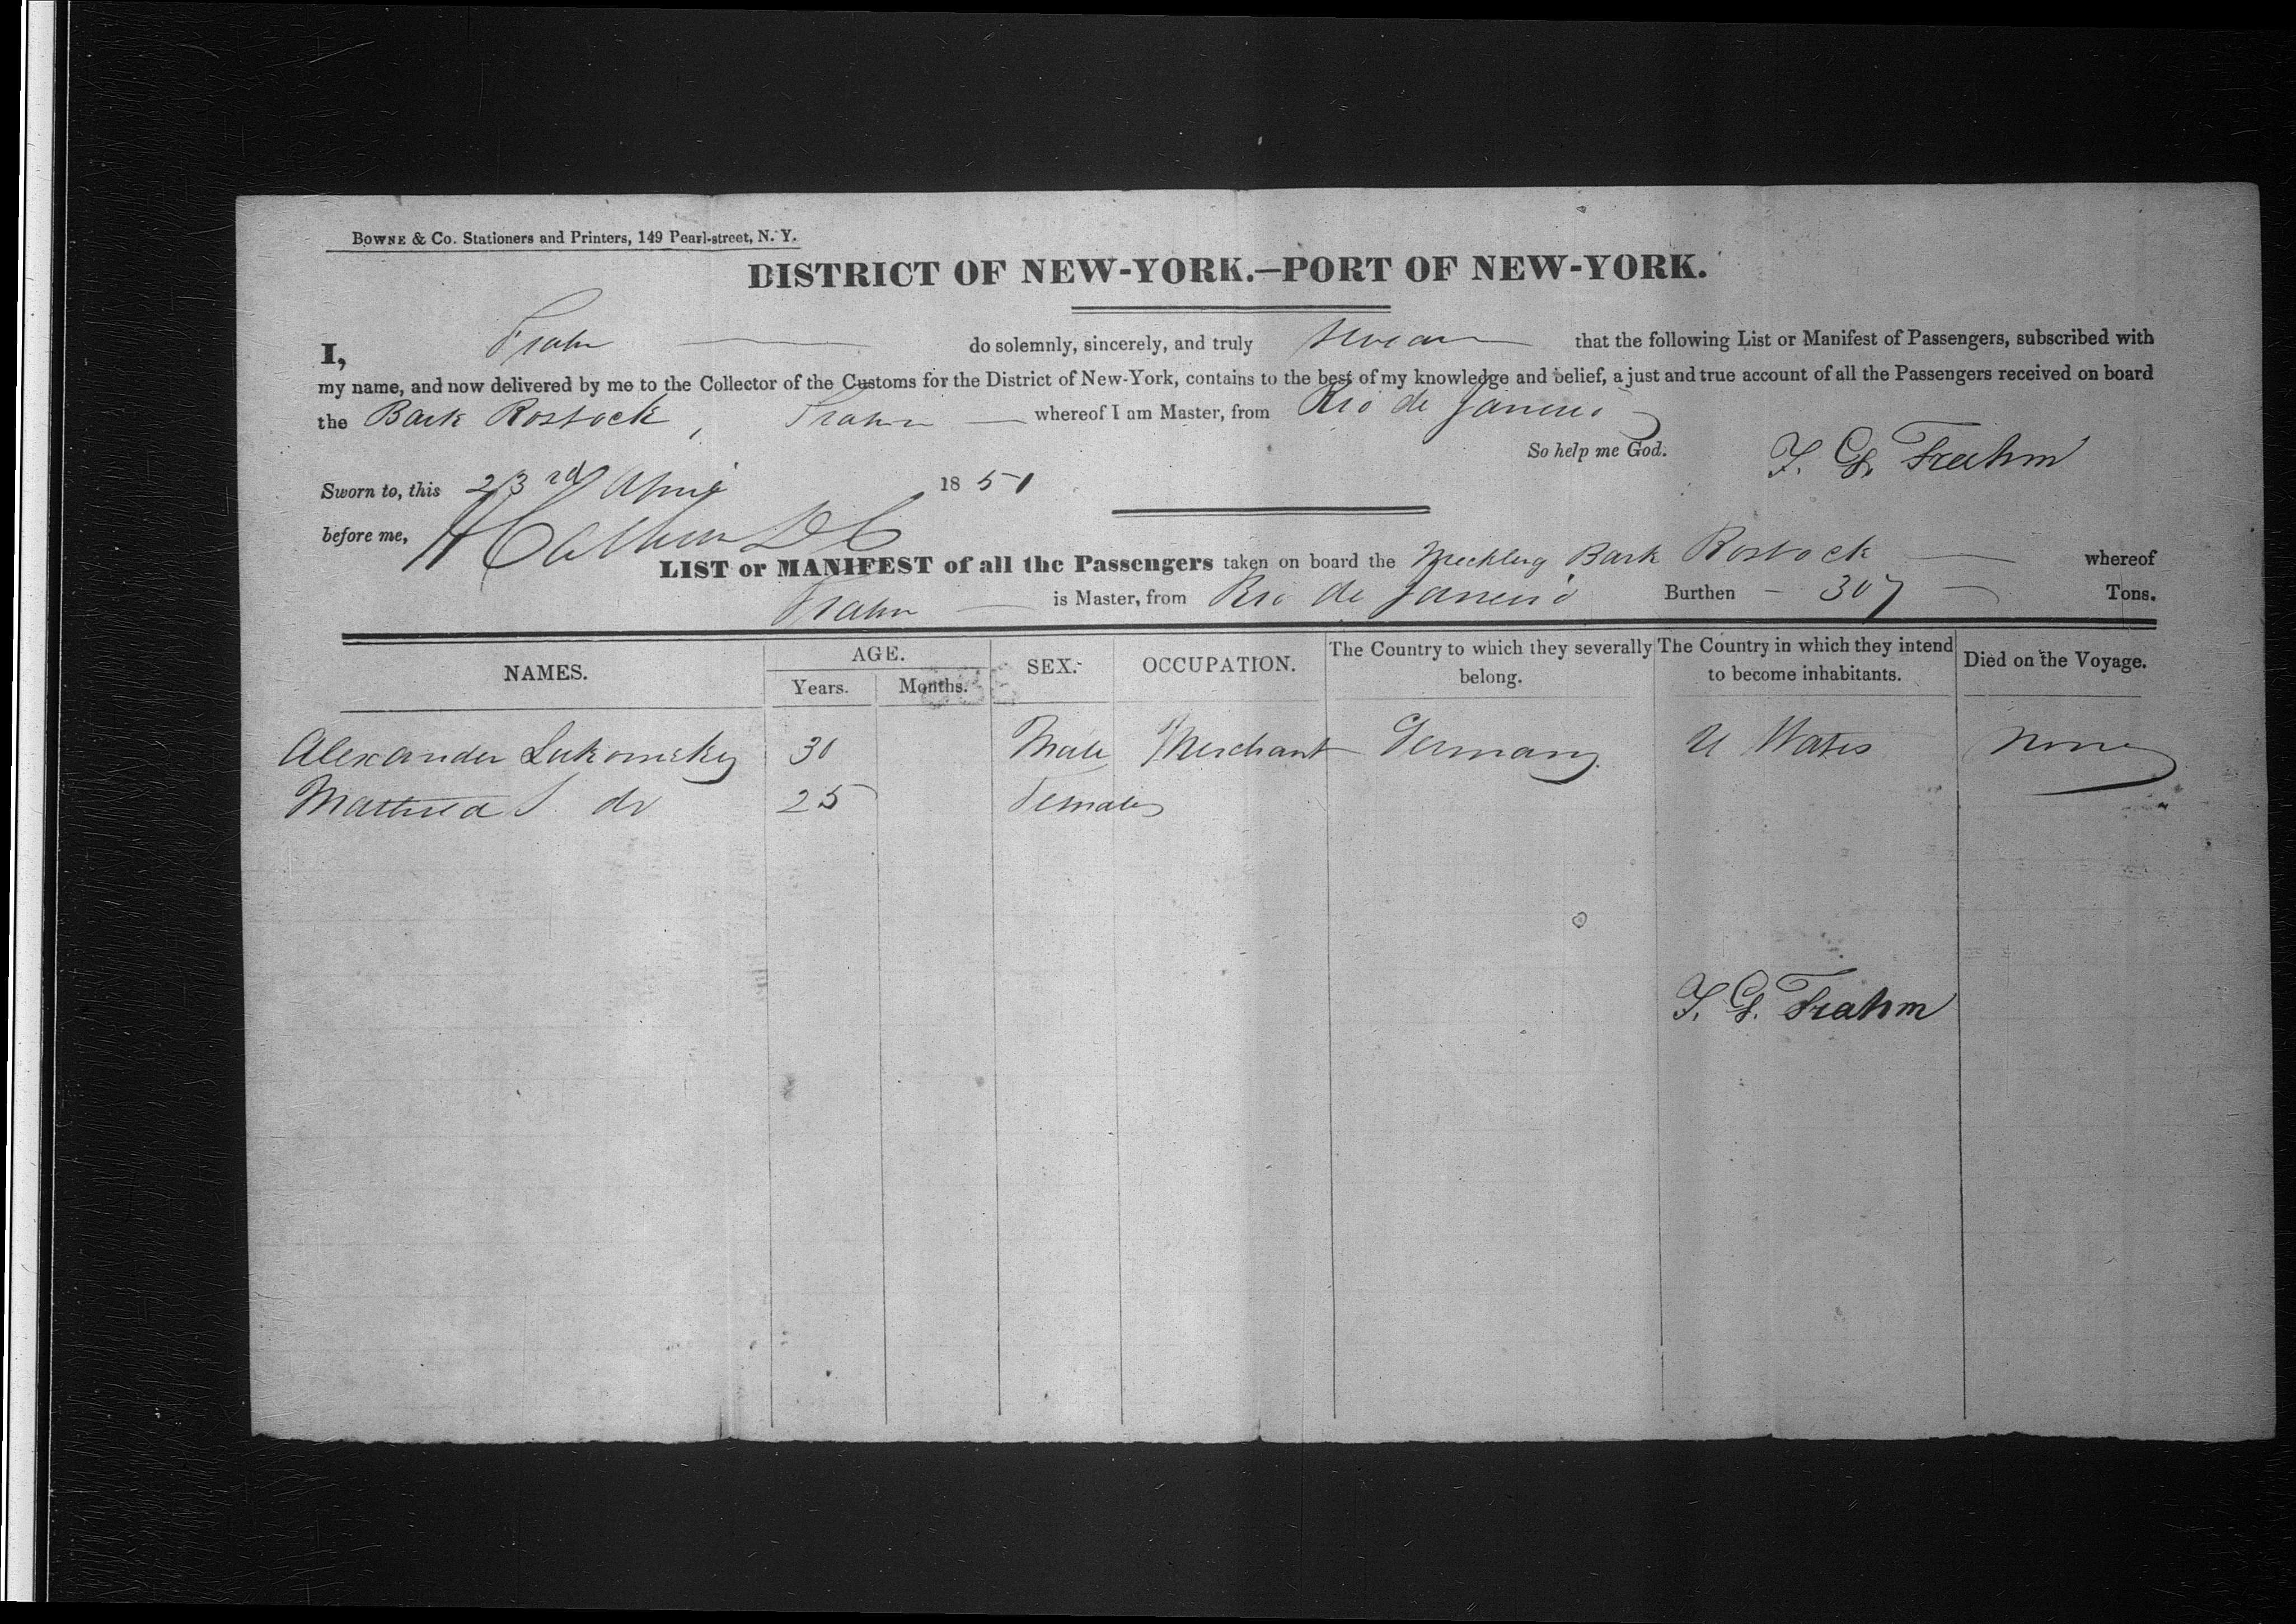 BOWNE & Co. Stationers and Printers, 149 Pearl-street, N. Y.
DISTRICT OF NEW-YORK.—PORT OF NEW-YORK.
I, Frahm do solemnly, sincerely, and truly swear that the following List or Manifest of Passengers, subscribed with
my name, and now delivered by me to the Collector of the Customs for the District of New-York, contains to the best of my knowledge and belief, a just and true account of all the Passengers received on board
the Bark Rostock, Frahm whereof I am Master, from Rio de Janeiro
So help me God. F. G. Frahm
Sworn to, this 23rd April 1851
before me,
LIST or MANIFEST of all the Passengers taken on board the Mecklbg Bark Rostock whereof
Frahm is Master, from Rio de Janeiro Burthen - 307 Tons.
NAMES. AGE. Years. Months. SEX. OCCUPATION. The Country to which they severally belong. The Country in which they intend to become inhabitants. Died on the Voyage.
Alexander 30 Male Merchant Germany U States None
do 25 Female
F. G. Frahm